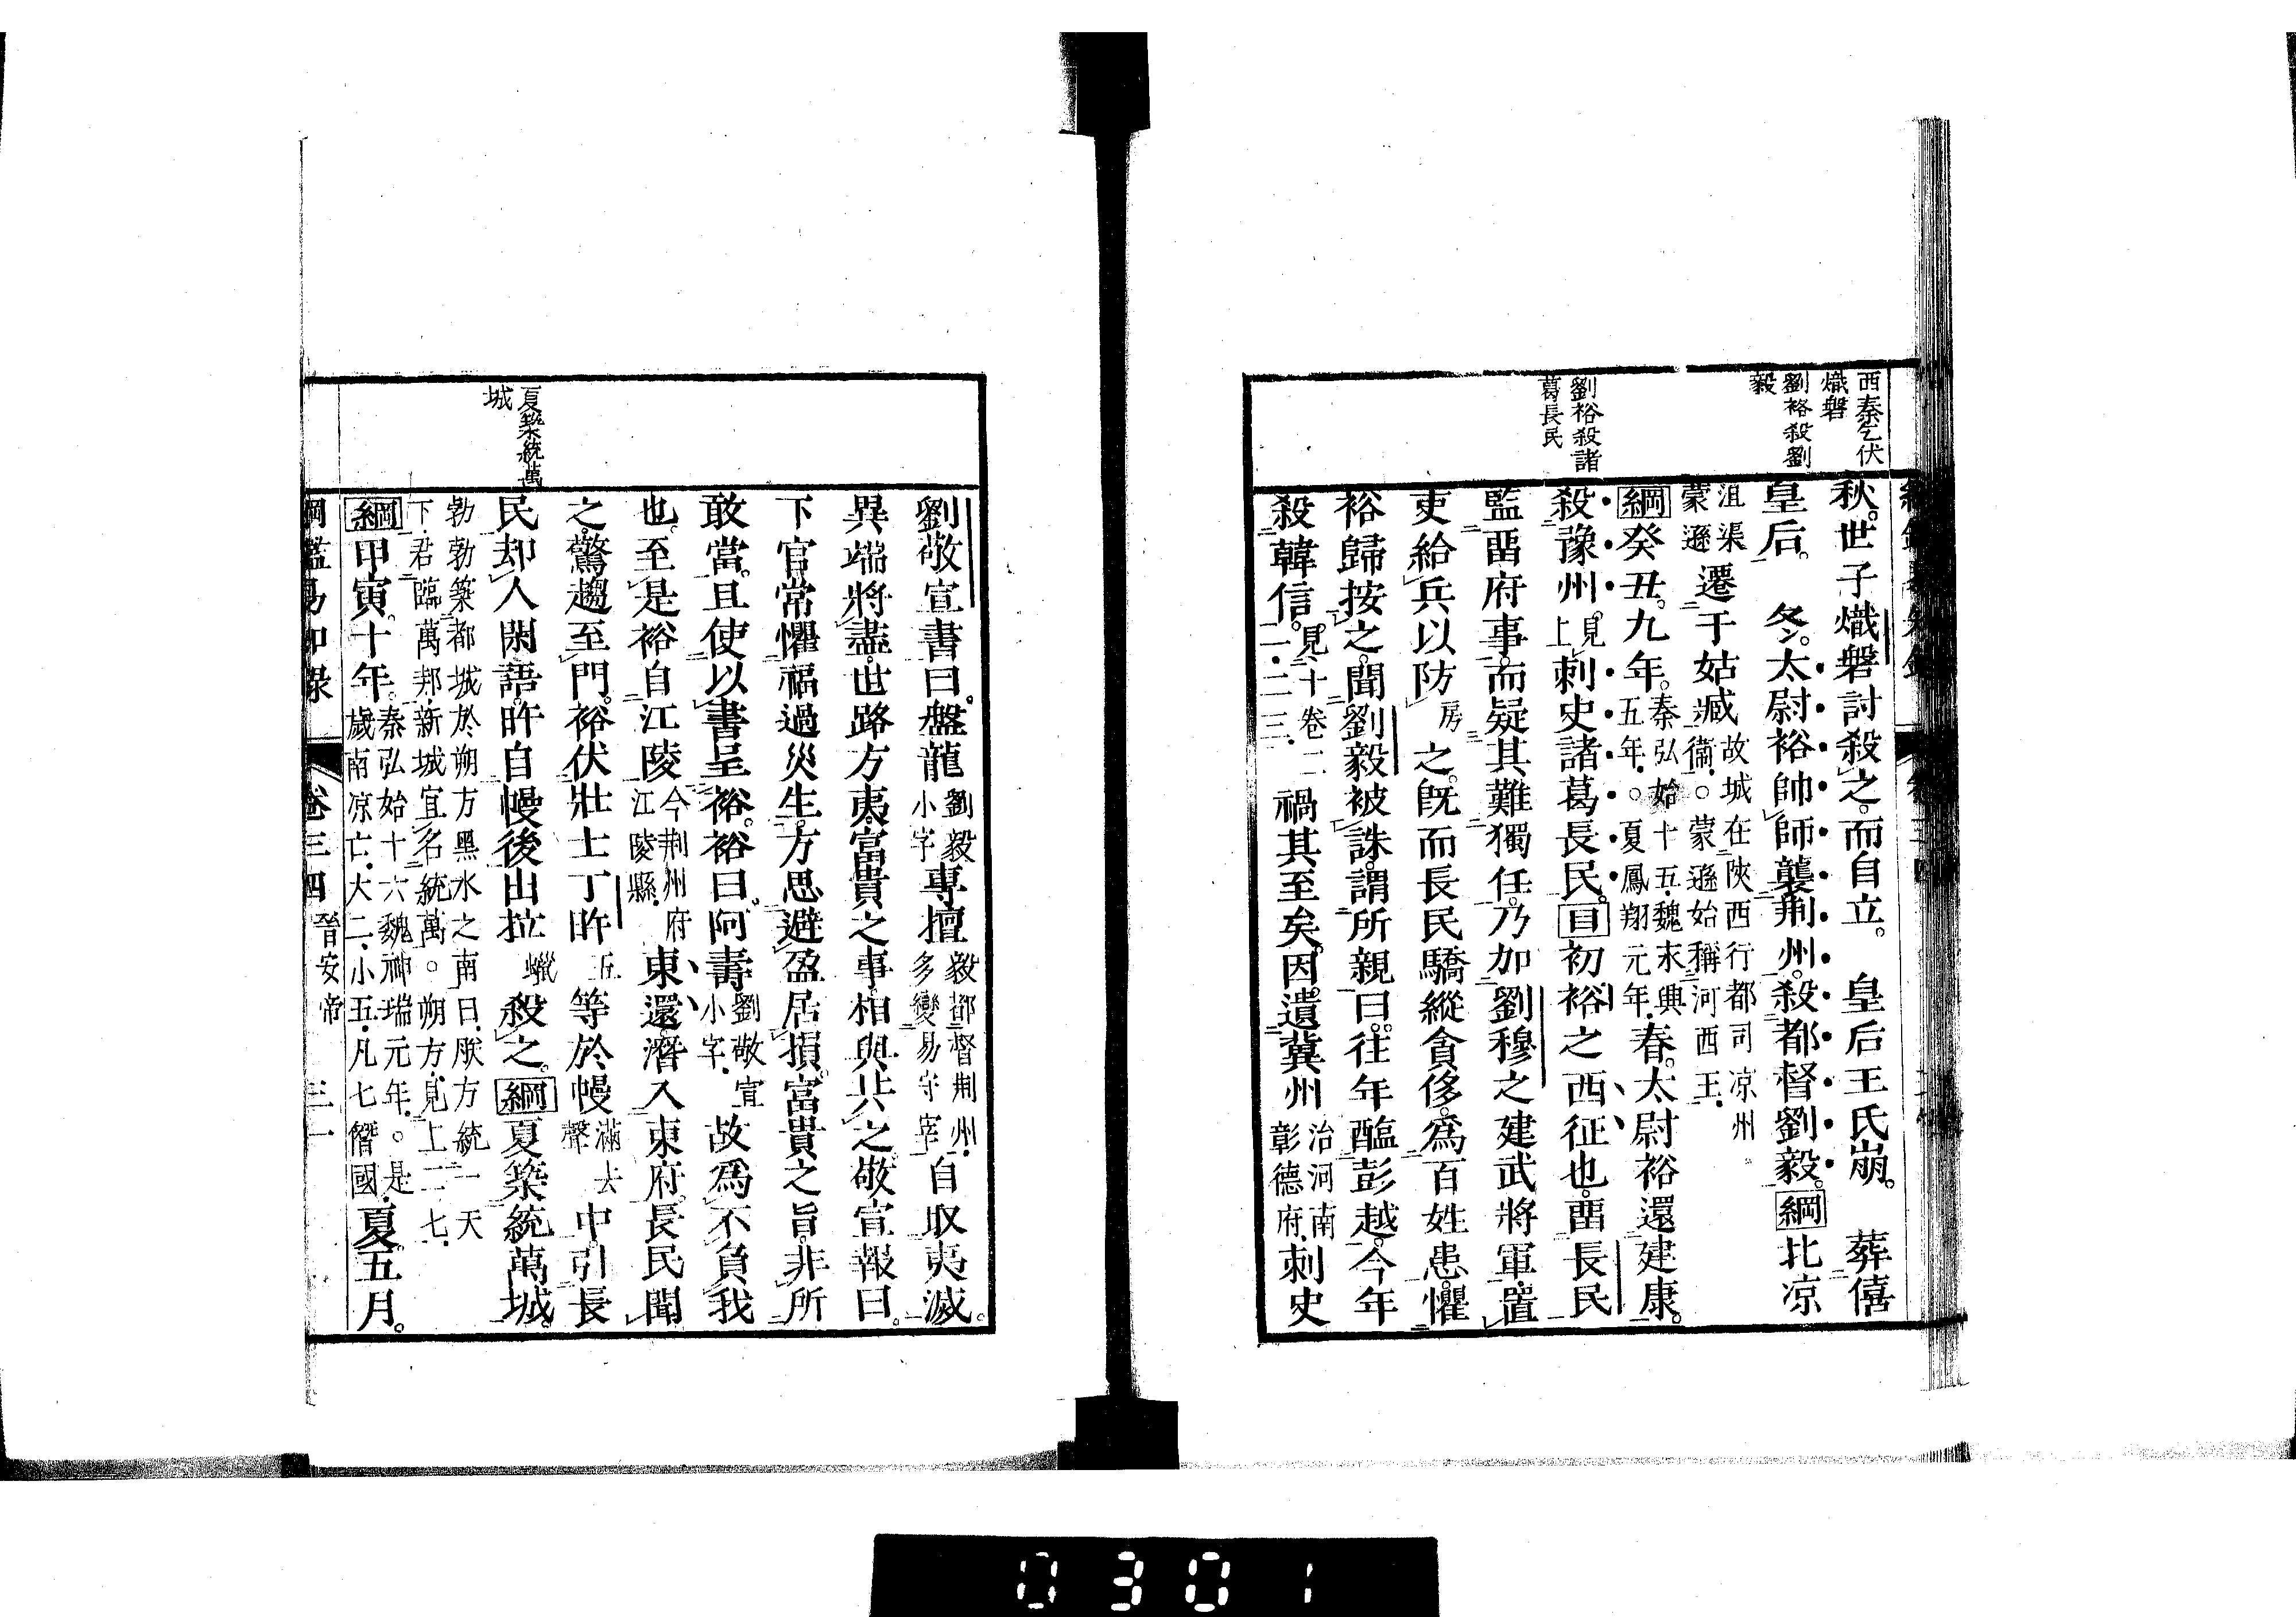 西秦乞伏
熾磐
劉裕殺劉
毅
劉裕殺諸
葛長民
秋。世子熾磐討殺之。而自立。 皇后王氏崩。 葬僖
皇后。 冬。太尉裕帥師襲荆州。殺都督劉毅。綱北凉
沮渠
蒙遜
遷于姑臧
故城在陝西行都司凉州
衞。○蒙遜始稱河西王。
綱癸丑。九年。
秦弘始十五。魏永興
五年。○夏鳳翔元年。
春。太尉裕還建康。
殺豫州。
見
上
刺史諸葛長民。目初裕之西征也。畱長民
監畱府事。而疑其難獨任。乃加劉穆之建武將軍。置
吏給兵以防
房
之。旣而長民驕縱貪侈。爲百姓患。懼
裕歸按之。聞劉毅被誅。謂所親曰。往年醢彭越。今年
殺韓信。
見十卷二
二・二三・
禍其至矣。因遺冀州
治河南
彰德府・
刺史
夏築統萬
城
劉敬宣書曰。盤龍
劉毅
小字
專擅
毅都督荆州・
多變易守宰・
自取夷滅。
異端將盡。世路方夷。富貴之事。相與共之。敬宣報曰。
下官常懼福過災生。方思避盈居損。富貴之旨。非所
敢當。且使以書呈裕。裕曰。阿壽
劉敬宣
小字・
故爲不負我
也。至是裕自江陵
今荆州府
江陵縣・
東還。潛入東府。長民聞
之。驚趨至門。裕伏壯士丁旿
五
等於幔
滿去
聲
中。引長
民却人閑語。旿自幔後出拉
蠟
殺之。綱夏築統萬城。
勃勃築都城於朔方黑水之南曰・朕方統一天
下・君臨萬邦・新城宜名統萬。○朔方・見上二七・
綱甲寅。十年。
秦弘始十六魏神瑞元年・○是
歲南凉亡・大二・小五・凡七僭國・
夏。五月。
綱鑑易知錄
卷三四
晉安帝
三一
0301